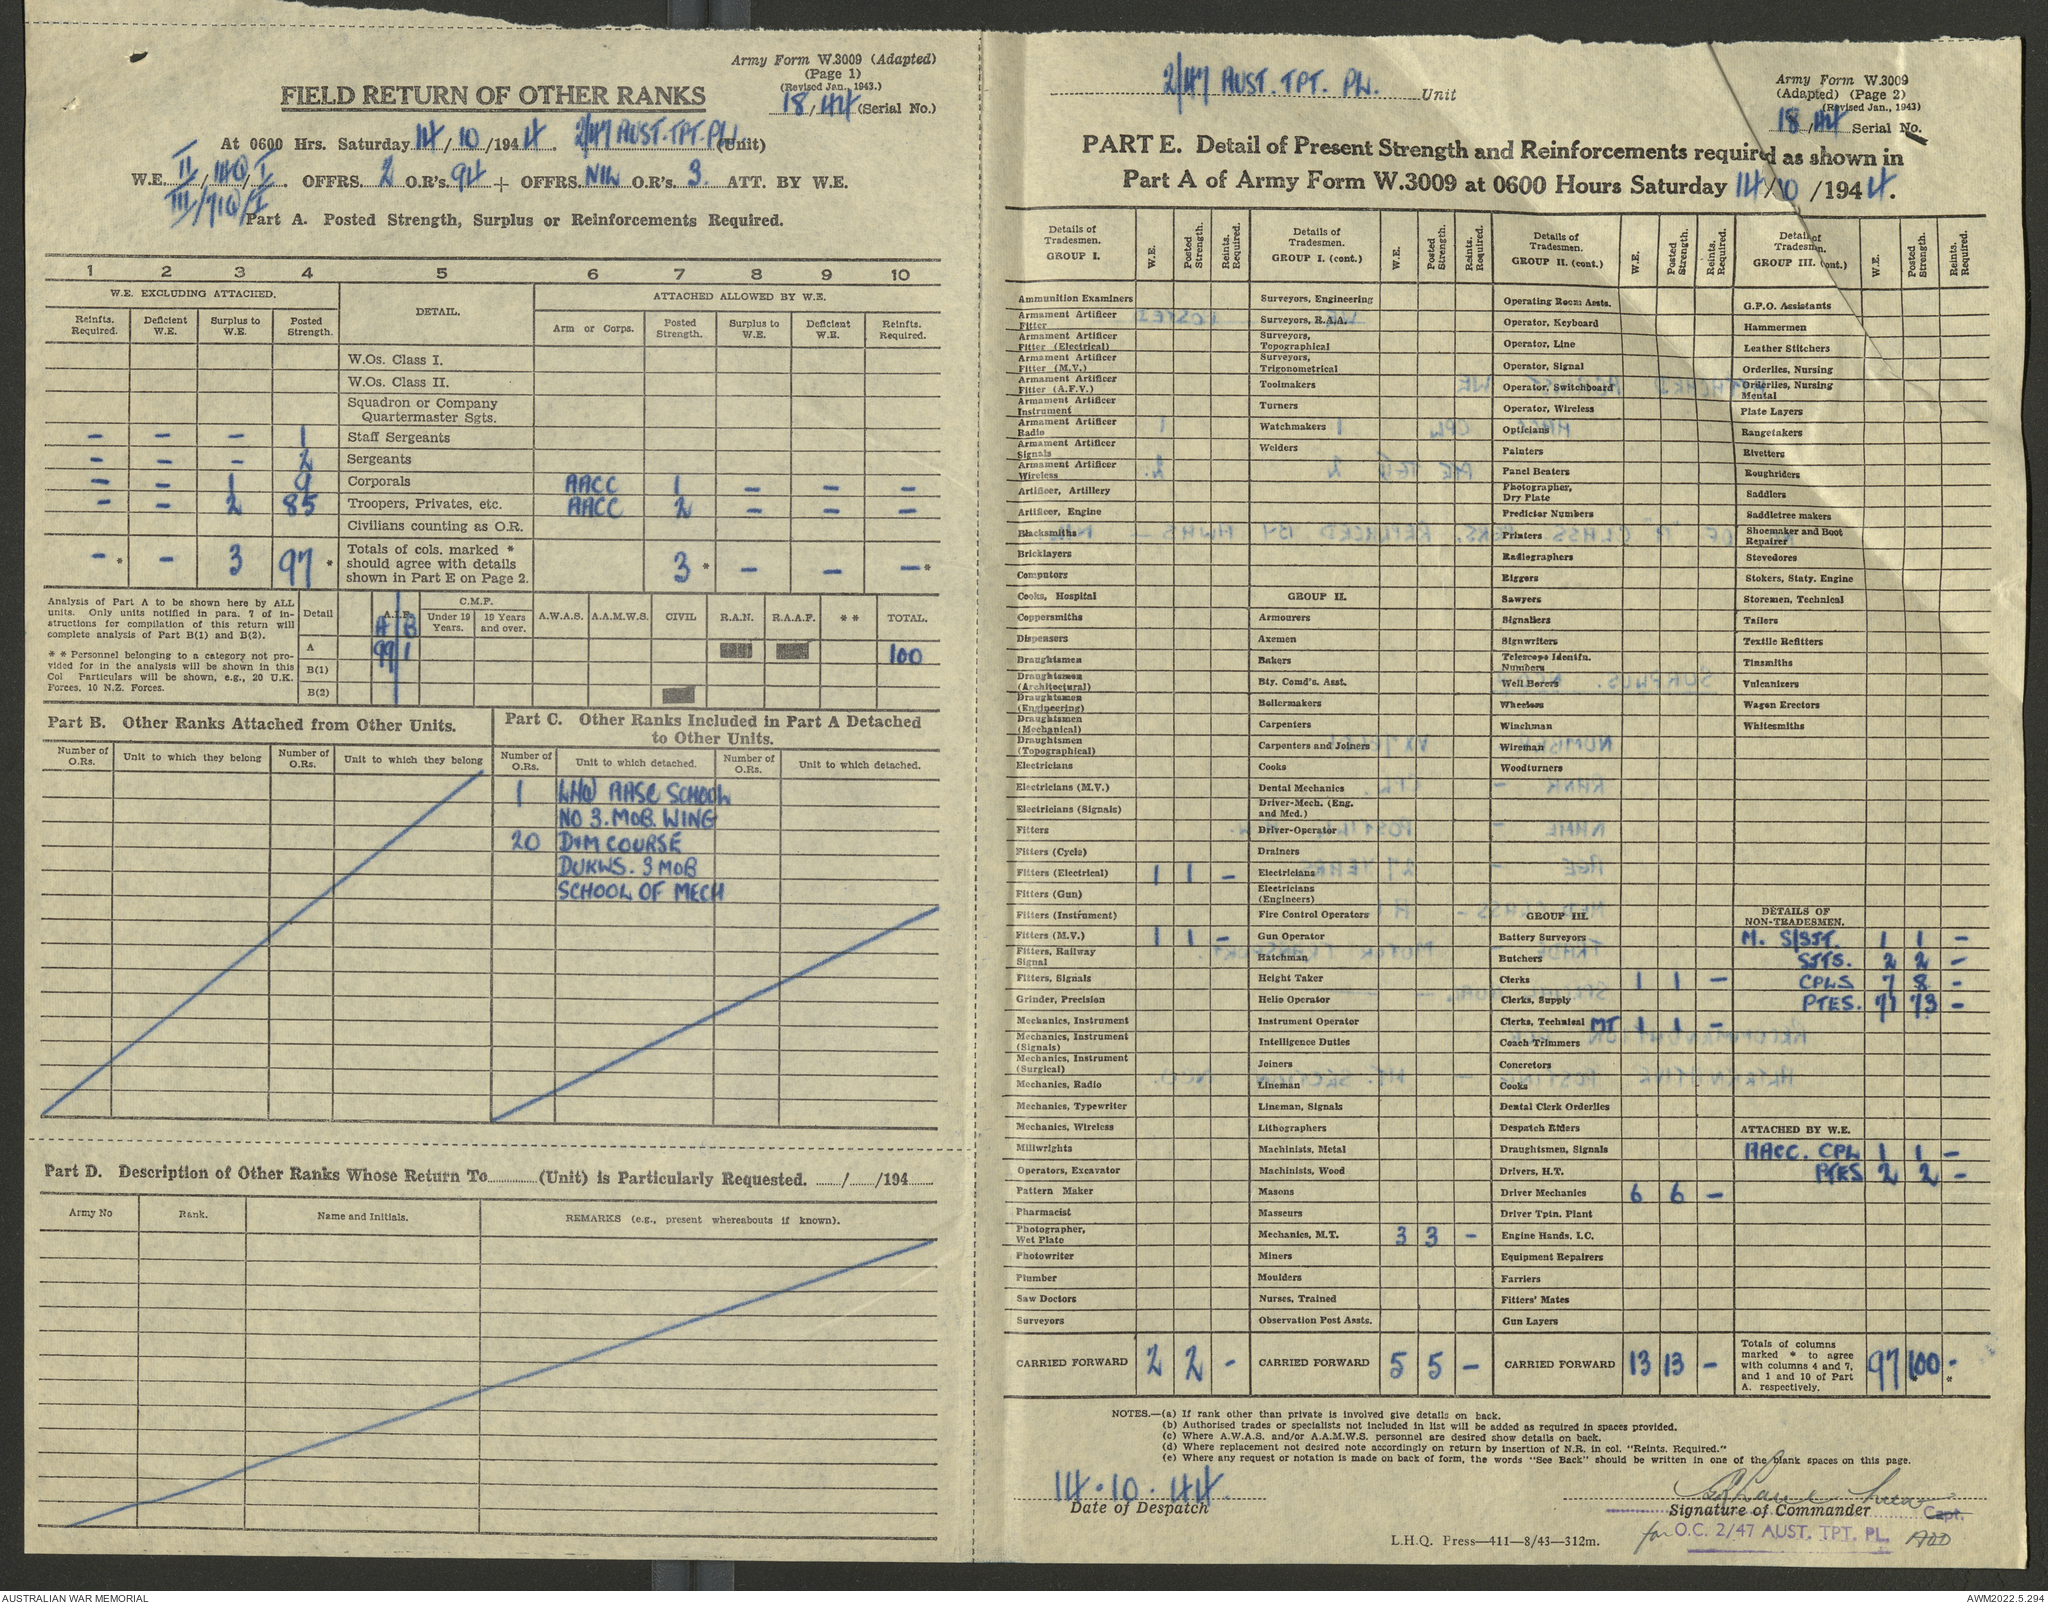 Army Form W.3009 (Adapted)
(Page 1)
(Revised Jan., 1943.)
18/44 (Serial No.)
FIELD RETURN OF OTHER RANKS
At 0600 Hrs. Saturday 14/10/1944. 2/47 AUST. TPT. PL. (Unit)
W.E. II/140/I. OFFRS. 2 O.R's. 94 + OFFRS. NIL O.R's. 3. ATT. BY W.E.
III/710/I
Part A. Posted Strength, Surplus or Reinforcements Required.
1 2 3 4 5 6 7 8 9 10
W.E. EXCLUDING ATTACHED. DETAIL. ATTACHED ALLOWED BY W.E.
Reinfts. Required. Deficient W.E. Surplus to W.E. Posted Strength. Arm or Corps. Posted Strength. Surplus to W.E. Deficient W.E. Reinfts. Required.
W.Os. Class I.
W.Os. Class II.
Squadron or Company Quartermaster Sgts.
– – – 1 Staff Sergeants
– – – 2 Sergeants
– – 1 9 Corporals AACC 1 – – –
– – 2 85 Troopers, Privates, etc. AACC 2 – – –
Civilians counting as O.R.
– * – 3 97 * Totals of cols. marked * should agree with details shown in Part E on Page 2. 3 * – – – *
Analysis of Part A to be shown here by ALL units. Only units notified in para. 7 of instructions for compilation of this return will complete analysis of Part B(1) and B(2).
* * Personnel belonging to a category not provided for in the analysis will be shown in this Col Particulars will be shown, e.g., 20 U.K. Forces, 10 N.Z. Forces.
Detail A.I.F. A B C.M.F. Under 19 Years. 19 Years and over. A.W.A.S. A.A.M.W.S. CIVIL R.A.N. R.A.A.F. * * TOTAL.
A 99 1 100
B(1)
B(2)
Part B. Other Ranks Attached from Other Units.
Number of O.Rs. Unit to which they belong Number of O.Rs. Unit to which they belong
Part C. Other Ranks Included in Part A Detached to Other Units.
Number of O.Rs. Unit to which detached. Number of O.Rs. Unit to which detached.
1 LHQ AASC SCHOOL
NO 3. MOB. WING
20 D&M COURSE
DUKWS. 3 MOB
SCHOOL OF MECH
Part D. Description of Other Ranks Whose Return To (Unit) is Particularly Requested. / /194
Army No Rank. Name and Initials. REMARKS (e.g., present whereabouts if known).
2/47 AUST. TPT. PL. Unit
Army Form W.3009
(Adapted) (Page 2)
(Revised Jan., 1943)
18/44 Serial No.
PART E. Detail of Present Strength and Reinforcements required as shown in
Part A of Army Form W.3009 at 0600 Hours Saturday 14/10/1944.
Details of Tradesmen. GROUP I. W.E. Posted Strength. Reints. Required.
Ammunition Examiners
Armament Artificer Fitter
Armament Artificer Fitter (Electrical)
Armament Artificer Fitter (M.V.)
Armament Artificer Fitter (A.F.V.)
Armament Artificer Instrument
Armament Artificer Radio
Armament Artificer Signals
Armament Artificer Wireless
Artificer, Artillery
Artificer, Engine
Blacksmiths
Bricklayers
Computors
Cooks, Hospital
Coppersmiths
Dispensers
Draughtsmen
Draughtsmen (Architectural)
Draughtsmen (Engineering)
Draughtsmen (Mechanical)
Draughtsmen (Topographical)
Electricians
Electricians (M.V.)
Electricians (Signals)
Fitters
Fitters (Cycle)
Fitters (Electrical) 1 1 –
Fitters (Gun)
Fitters (Instrument)
Fitters (M.V.) 1 1 –
Fitters, Railway Signal
Fitters, Signals
Grinder, Precision
Mechanics, Instrument
Mechanics, Instrument (Signals)
Mechanics, Instrument (Surgical)
Mechanics, Radio
Mechanics, Typewriter
Mechanics, Wireless
Millwrights
Operators, Excavator
Pattern Maker
Pharmacist
Photographer, Wet Plate
Photowriter
Plumber
Saw Doctors
Surveyors
CARRIED FORWARD 2 2 –
Details of Tradesmen. GROUP I. (cont.) W.E. Posted Strength. Reints. Required.
Surveyors, Engineering
Surveyors, R.A.A.
Surveyors, Topographical
Surveyors, Trigonometrical
Toolmakers
Turners
Watchmakers
Welders
GROUP II.
Armourers
Axemen
Bakers
Bty. Comd's. Asst.
Boilermakers
Carpenters
Carpenters and Joiners
Cooks
Dental Mechanics
Driver-Mech. (Eng. and Med.)
Driver-Operator
Drainers
Electricians
Electricians (Engineers)
Fire Control Operators
Gun Operator
Hatchman
Height Taker
Helio Operator
Instrument Operator
Intelligence Duties
Joiners
Lineman
Lineman, Signals
Lithographers
Machinists, Metal
Machinists, Wood
Masons
Masseurs
Mechanics, M.T. 3 3 –
Miners
Moulders
Nurses, Trained
Observation Post Assts.
CARRIED FORWARD 5 5 –
Details of Tradesmen. GROUP II. (cont.) W.E. Posted Strength. Reints. Required.
Operating Room Assts.
Operator, Keyboard
Operator, Line
Operator, Signal
Operator, Switchboard
Operator, Wireless
Opticians
Painters
Panel Beaters
Photographer, Dry Plate
Predictor Numbers
Printers
Radiographers
Riggers
Sawyers
Signallers
Signwriters
Telescope Identfn. Numbers
Well Borers
Wheelers
Winchman
Wireman
Woodturners
GROUP III.
Battery Surveyors
Butchers
Clerks 1 1 –
Clerks, Supply
Clerks, Technical MT 1 1 –
Coach Trimmers
Concretors
Cooks
Dental Clerk Orderlies
Despatch Riders
Draughtsmen, Signals
Drivers, H.T.
Driver Mechanics 6 6 –
Driver Tptn. Plant
Engine Hands. I.C.
Equipment Repairers
Farriers
Fitters' Mates
Gun Layers
CARRIED FORWARD 13 13 –
Details of Tradesmen. GROUP III. (cont.) W.E. Posted Strength. Reints. Required.
G.P.O. Assistants
Hammermen
Leather Stitchers
Orderlies, Nursing
Orderlies, Nursing Mental
Plate Layers
Rangetakers
Rivetters
Roughriders
Saddlers
Saddletree makers
Shoemaker and Boot Repairer
Stevedores
Stokers, Staty. Engine
Storemen, Technical
Tailors
Textile Refitters
Tinsmiths
Vulcanizers
Wagon Erectors
Whitesmiths
DETAILS OF NON-TRADESMEN.
M. S/SJT. 1 1 –
SJTS. 2 2 –
CPLS 7 8 –
PTES. 71 73 –
ATTACHED BY W.E.
AACC. CPL 1 1 –
PTES 2 2 –
Totals of columns marked * to agree with columns 4 and 7, and 1 and 10 of Part A. respectively. 97 100 * – *
NOTES.—(a) If rank other than private is involved give details on back.
(b) Authorised trades or specialists not included in list will be added as required in spaces provided.
(c) Where A.W.A.S. and/or A.A.M.W.S. personnel are desired show details on back.
(d) Where replacement not desired note accordingly on return by insertion of N.R. in col. "Reints. Required."
(e) Where any request or notation is made on back of form, the words "See Back" should be written in one of the blank spaces on this page.
14.10.44.
Date of Despatch
Signature of Commander Capt.
for O.C. 2/47 AUST. TPT. PL.
L.H.Q. Press—411—8/43—312m.
AUSTRALIAN WAR MEMORIAL
AWM2022.5.294